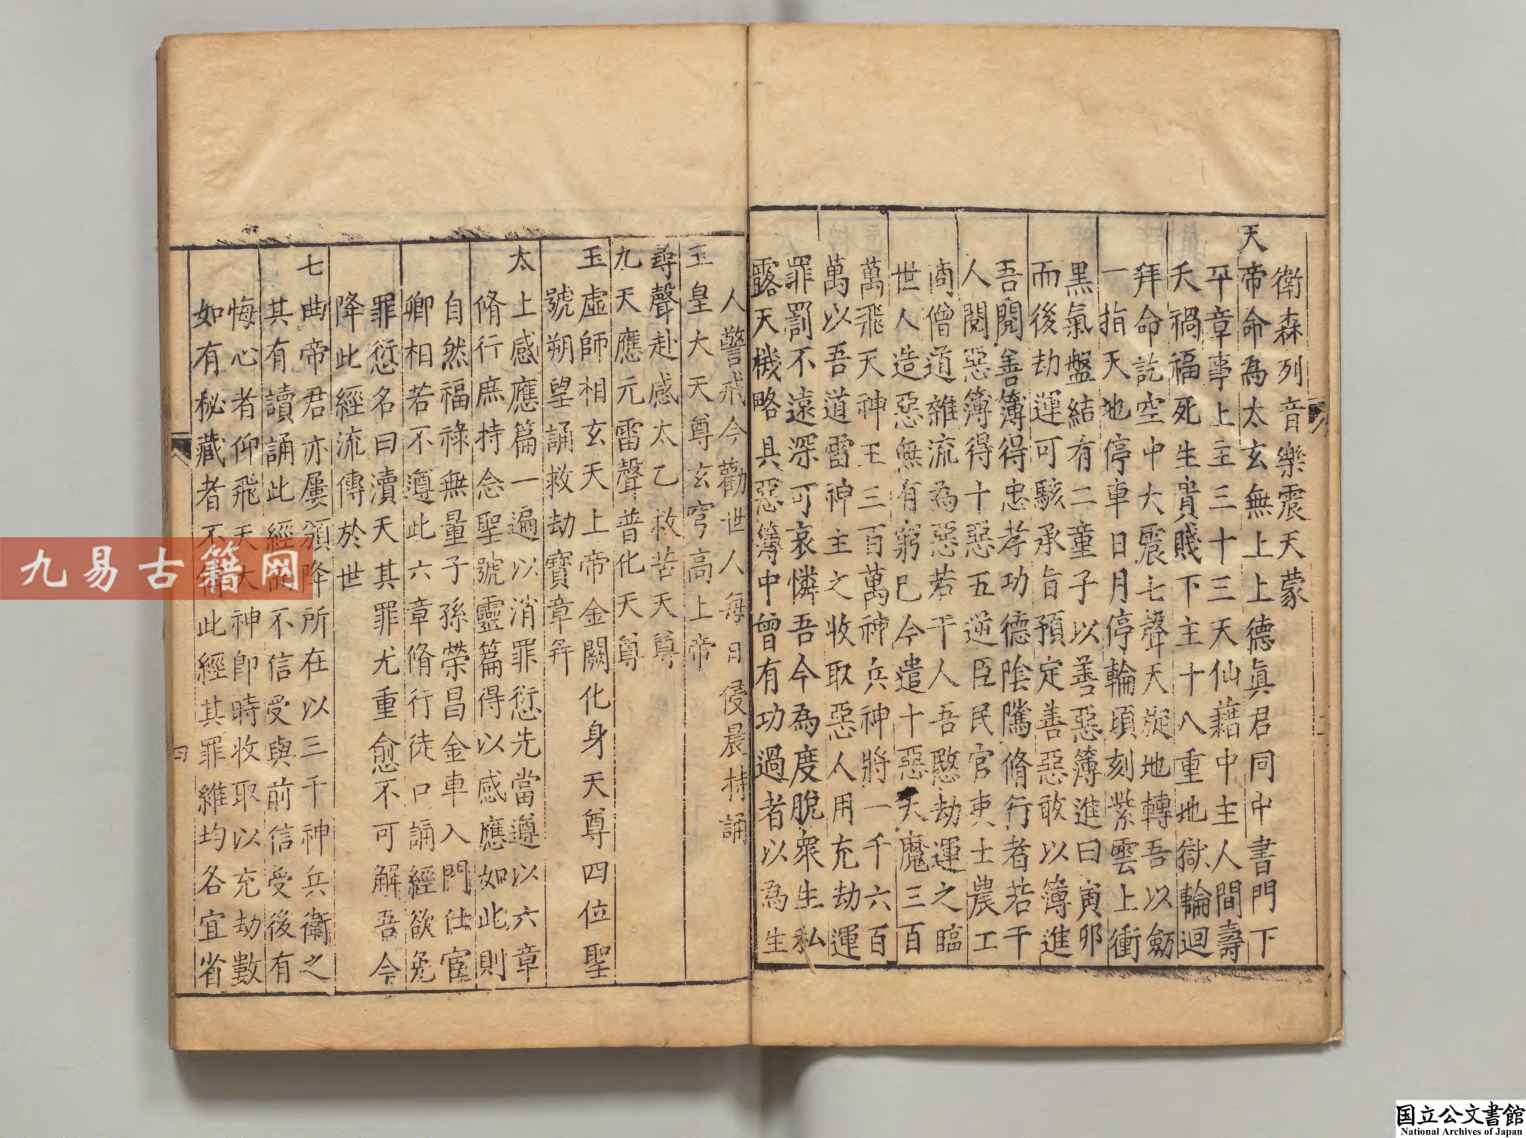 衛森列音樂震天蒙
天帝命為太玄無上上德眞君同中書門下
平章事上主三十三天仙籍中主人間壽
夭禍福死生貴賤下主十八重地獄輪迴
拜命訖空中大震七聲天旋地轉吾以劒
一指天地停車日月停輪頃刻紫雲上衝
黑氣盤結有二童子以善惡簿進曰寅卯
而後劫運可駭承旨預定善惡敢以簿進
吾閱善簿得忠孝功德陰騭脩行者若干
人閱惡簿得十惡五逆臣民官吏士農工
啇僧道雜流為惡若干人吾愍劫運之臨
世人造惡無有窮已今遣十惡大魔三百
萬飛天神王三百萬神兵神將一千六百
萬以吾道雷神主之收取惡人用充劫運
罪罰不遠深可哀憐吾今為度脫衆生私
露天機略具惡簿中曾有功過者以為生
人警戒今勸世人每日侵晨持誦
玉皇大天尊玄穹高上帝
尋聲赴感太乙救苦天尊
九天應元雷聲普化天尊
玉虛師相玄天上帝金闕化身天尊四位聖
號朔望誦救劫寶章并
太上感應篇一遍以消罪愆先當遵以六章
脩行庶持念聖號靈篇得以感應如此則
自然福祿無量子孫榮昌金車入門仕宦
卿相若不遵此六章脩行徒口誦經欲免
罪愆名曰瀆天其罪尤重愈不可解吾今
降此經流傳於世
七曲帝君亦屢頒降所在以三千神兵衛之
其有讀誦此經不信受與前信受後有
悔心者仰飛天大神卽時收取以充劫數
如有秘藏者不此經其罪維均各宜省
四
九易古籍网
国立公文書館
National Archives of Japan